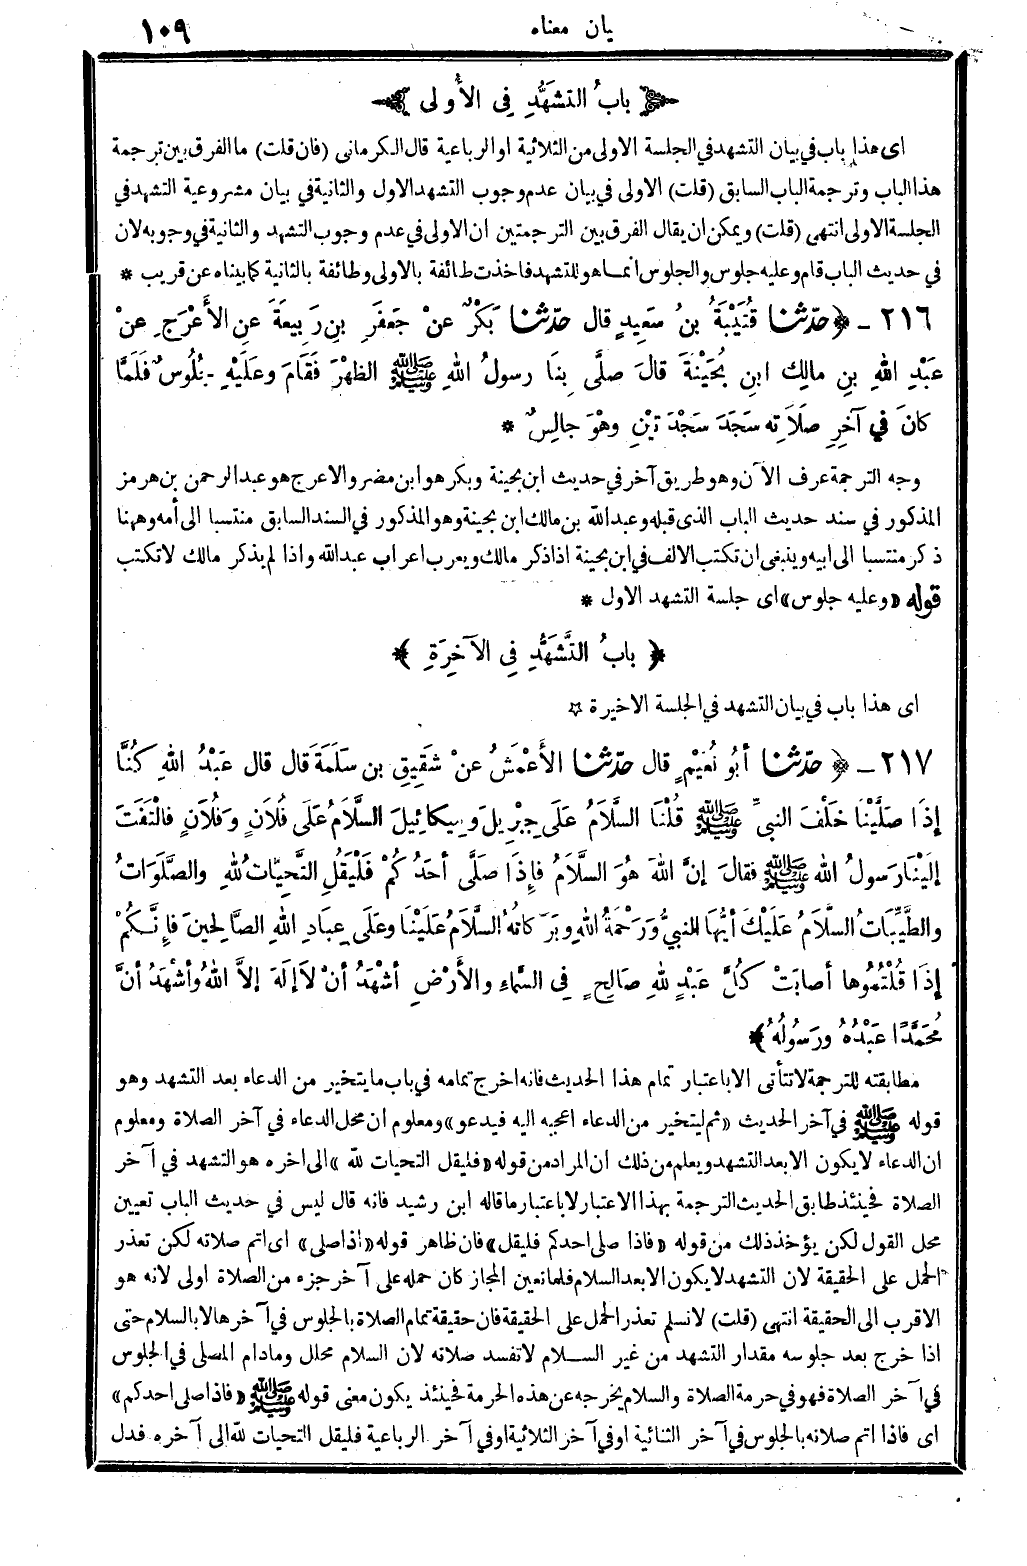 بيان معناه ١٠٩
باب التشهد في الأولى
اى هذا باب في بيان التشهد في الجلسة الاولى من الثلاثية او الرباعية قال الكرماني (فان قلت) ما الفرق بين ترجمة
هذا الباب وترجمة الباب السابق (قلت) الاولى في بيان عدم وجوب التشهد الاول والثانية في بيان مشروعية التشهد في
الجلسة الاولى انتهى (قلت) ويمكن ان يقال الفرق بين الترجمتين ان الاولى في عدم وجوب التشهد والثانية في وجوبه لان
في حديث الباب قام وعليه جلوس والجلوس انما هو للتشهد فاخذت طائفة بالاولى وطائفة بالثانية كما بيناه عن قريب *
٢١٦ - ﴿حدّثنا قُتَيْبَةُ بنُ سَعِيدٍ قال حدّثنا بَكْرٌ عنْ جَعفَرِ بنِ رَبِيعَةَ عنِ الأَعْرَجِ عنْ
عَبْدِ اللهِ بنِ مالِكٍ ابنِ بُحَيْنَةَ قالَ صلَّى بِنَا رسولُ اللهِ ﷺ الظهْرَ فَقَامَ وعَلَيْهِ جُلُوسٌ فَلَمَّا
كانَ في آخرِ صلَاَتِه سَجَدَ سَجْدَتَيْنِ وهْوَ جالِسٌ *
وجه الترجمة عرف الآن وهو طريق آخر في حديث ابن بحينة وبكر هو ابن مضر والاعرج هو عبد الرحمن بن هرمز
المذكور في سند حديث الباب الذى قبله وعبد الله بن مالك ابن بحينة وهو المذكور في السند السابق منتسبا الى أمه وههنا
ذكر منتسبا الى ابيه وينبغى ان تكتب الالف في ابن بحينة اذا ذكر مالك ويعرب اعراب عبد الله واذا لم يذكر مالك لا تكتب
قوله «وعليه جلوس» اى جلسة التشهد الاول *
﴿ بابُ التَّشَهُّدِ فِى الآخِرَةِ ﴾
اى هذا باب في بيان التشهد في الجلسة الاخيرة ☆
٢١٧ - ﴿ حدّثنا أبُو نُعَيْمٍ قال حدّثنا الأَعْمَشُ عنْ شَقِيقِ بنِ سَلَمَةَ قال قال عَبْدُ اللهِ كُنَّا
إذَا صلَّيْنَا خَلْفَ النبىِّ ﷺ قُلْنَا السَّلاَمُ عَلَى جِبْرِيلَ وَمِيكائِيلَ السَّلاَمُ عَلَى فُلاَنٍ وَفُلاَنٍ فالْتَفَتَ
إلَيْنَا رَسولُ اللهِ ﷺ فقالَ إنَّ اللهَ هُوَ السَّلاَمُ فإِذَا صلَّى أحَدُكُمْ فَلْيَقُلِ التَّحِيَّاتُ لِلهِ والصَّلَوَاتُ
والطَّيِّبَاتُ السَّلاَمُ عَلَيْكَ أيُّهَا النبيُّ وَرَحْمَةُ اللهِ وبَرَكاتُهُ السَّلاَمُ عَلَيْنَا وعَلَى عِبادِ اللهِ الصَّالِحِينَ فإِنَّكُمْ
إذَا قُلْتُمُوها أصابَتْ كُلَّ عَبْدٍ لِلهِ صَالِحٍ فِي السَّماءِ والأَرْضِ أشْهَدُ أنْ لاَ إلَهَ إلاَّ اللهُ وأشْهَدُ أنَّ
مُحَمَّدًا عَبْدُهُ ورَسُولُهُ ﴾
مطابقته للترجمة لا تتأتى الا باعتبار تمام هذا الحديث فانه اخرج تمامه في باب ما يتخير من الدعاء بعد التشهد وهو
قوله ﷺ في آخر الحديث «ثم ليتخير من الدعاء اعجبه اليه فيدعو» ومعلوم ان محل الدعاء في آخر الصلاة ومعلوم
ان الدعاء لا يكون الا بعد التشهد ويعلم من ذلك ان المراد من قوله «فليقل التحيات لله» الى اخره هو التشهد في آخر
الصلاة فحينئذ طابق الحديث الترجمة بهذا الاعتبار لا باعتبار ما قاله ابن رشيد فانه قال ليس في حديث الباب تعيين
محل القول لكن يؤخذ ذلك من قوله «فاذا صلى احدكم فليقل» فان ظاهر قوله «اذا صلى» اى اتم صلاته لكن تعذر
الحمل على الحقيقة لان التشهد لا يكون الا بعد السلام فلما تعين المجاز كان حمله على آخر جزء من الصلاة اولى لانه هو
الاقرب الى الحقيقة انتهى (قلت) لا نسلم تعذر الحمل على الحقيقة فان حقيقة تمام الصلاة بالجلوس في آخرها لا بالسلام حتى
اذا خرج بعد جلوسه مقدار التشهد من غير السلام لا تفسد صلاته لان السلام محلل وما دام المصلى في الجلوس
في آخر الصلاة فهو في حرمة الصلاة والسلام يخرجه عن هذه الحرمة فحينئذ يكون معنى قوله ﷺ «فاذا صلى احدكم»
اى فاذا اتم صلاته بالجلوس في آخر الثنائية او في آخر الثلاثية او في آخر الرباعية فليقل التحيات لله الى آخره فدل